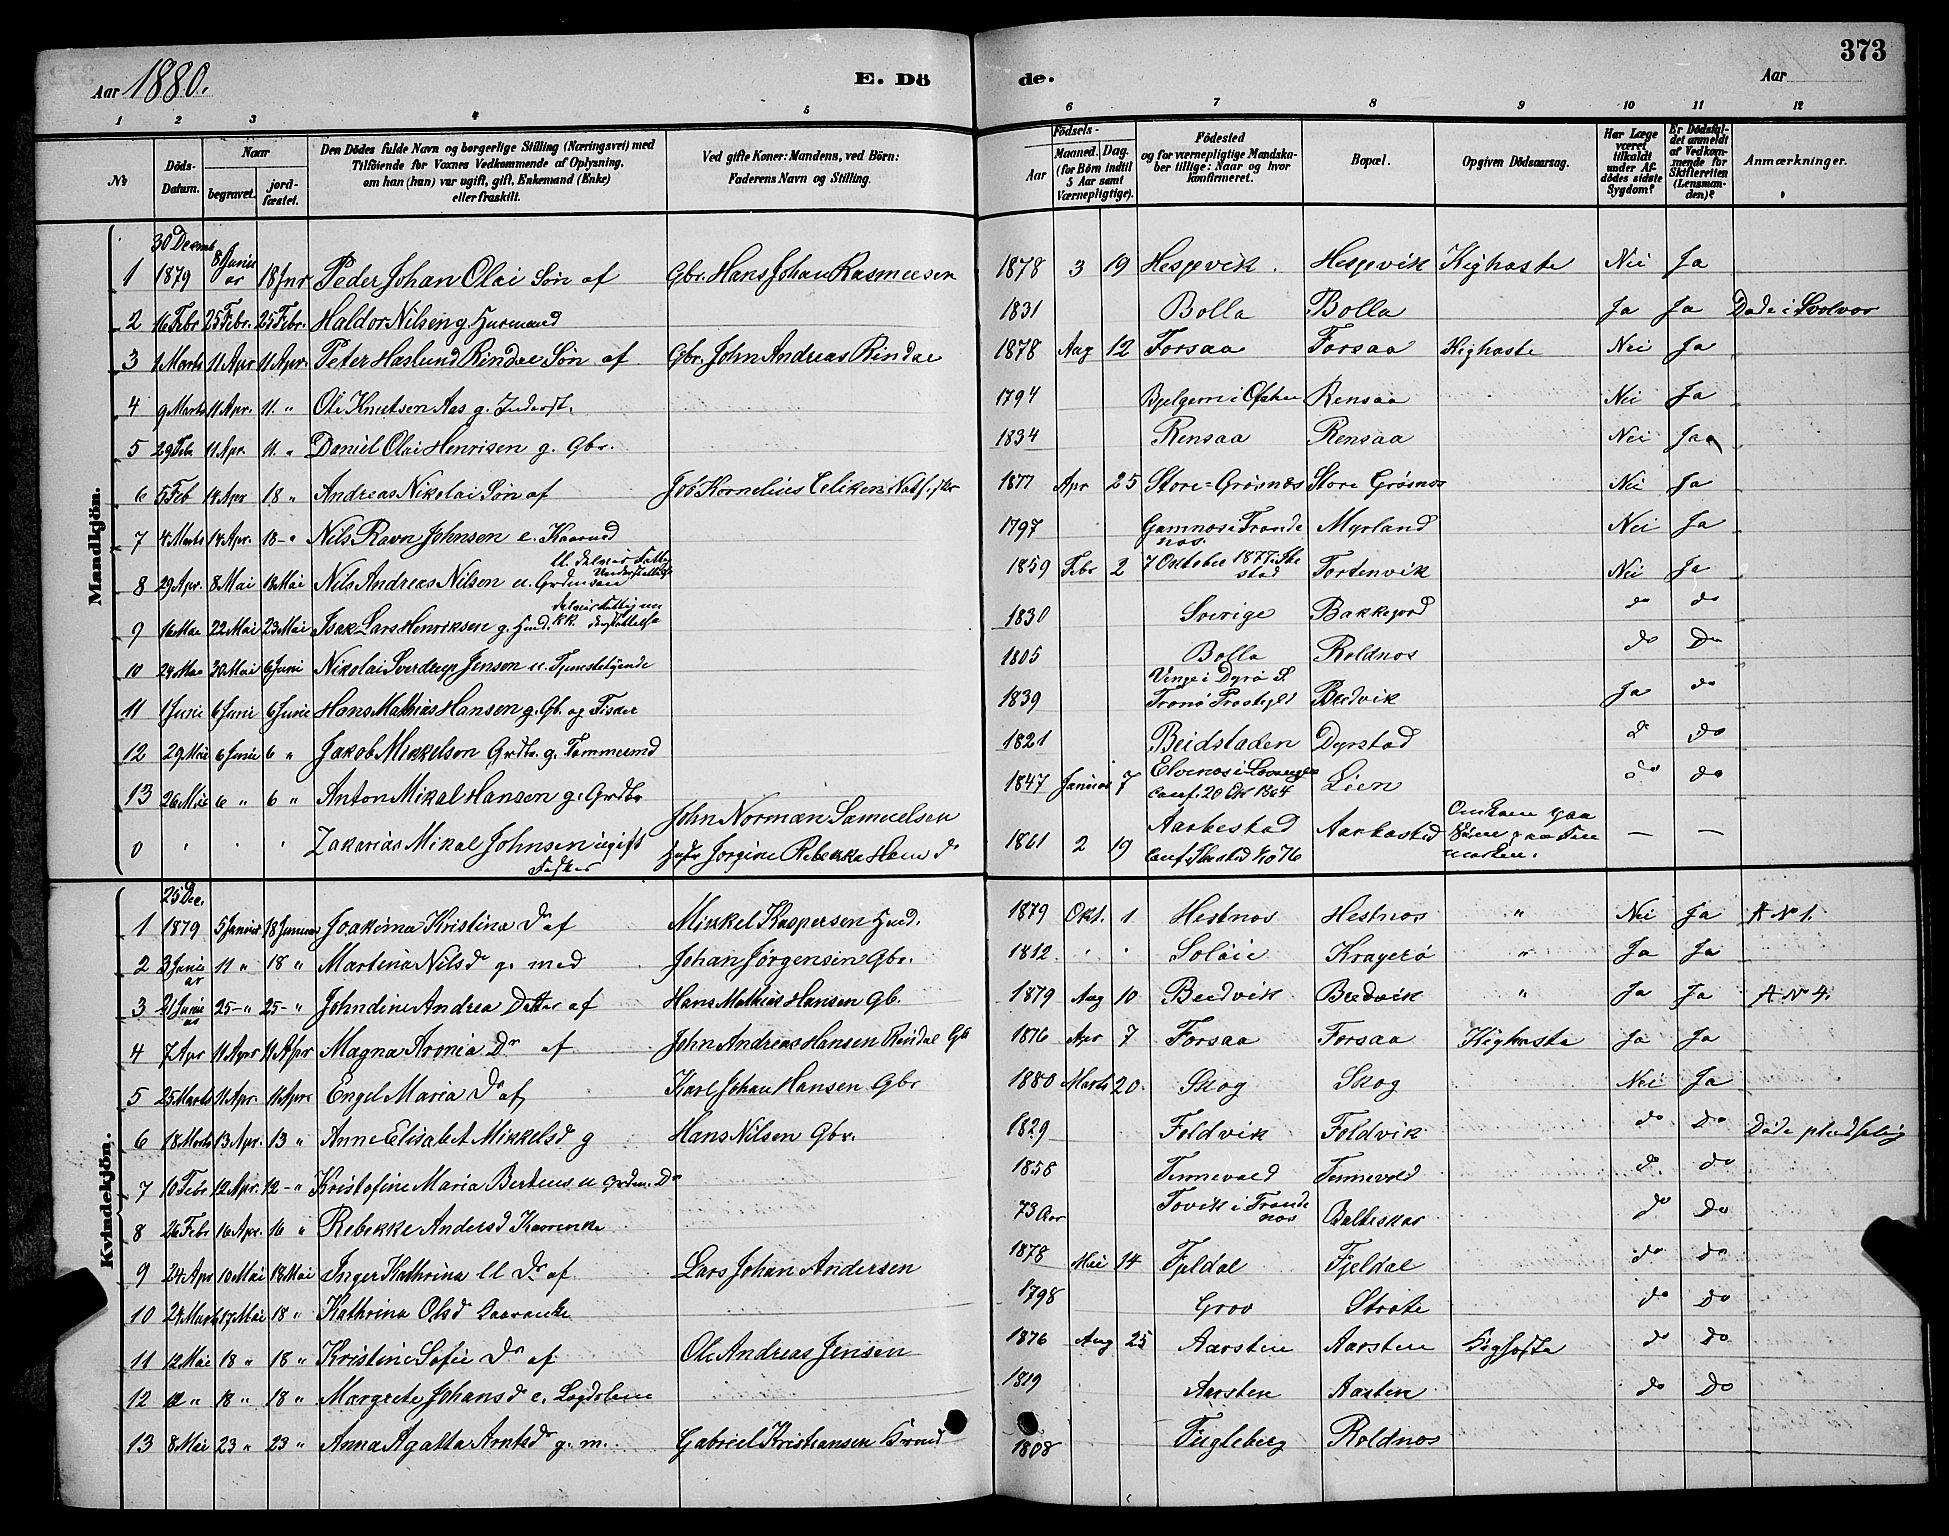 Aar 1880. E. Dö de. Aar 373
1 2 3 4 5 6 7 8 9 10 11 12
№ Döds-Datum. Naar begravet. jord-fæstet. Den Dödes fulde Navn og borgerlige Stilling (Næringsvei) med Tilföiende for Voxnes Vedkommende af Oplysning, om han (hun) var ugift, gift, Enkemand (Enke) eller fraskilt. Ved gifte Koner: Mandens, ved Börn: Faderens Navn og Stilling. Födsels- Aar Maaned. Dag. (for Börn indtil 5 Aar samt Værnepligtige). Födested og for værnepligtige Mandskaber tillige: Naar og hvor konfirmeret. Bopæl. Opgiven Dödsaarsag. Har Læge været tilkaldt under Afdödes sidste Sygdom? Er Dödsfaldet anmeldt af Vedkommende for Skifteretten (Lensmanden)? Anmærkninger.
Mandkjön.
1 30 Decemb 1879 8 Januar 18 Jnr Peder Johan Olai Søn af Gbr. Hans Johan Rasmussen 1878 3 19 Hesjevik Hesjevik Kighoste Nei Ja
2 16 Febr 25 Febr. 25 Febr. Haldor Nilsen g Husmand 1831 Bolla Bolla Ja Ja Døde i Svolvær
3 1 Marts 11 Apr 11 Apr. Peter Haslund Rindae Søn af Gbr. John Andreas Rindae 1878 Aug 12 Forsaa Forsaa Kighoste Nei Ja
4 9 Marts 11 Apr. 11. " Ole Knutsen Aas g. Inderst. 1794 Bjelgern i Ofoten Rensaa Nei Ja
5 29 Febr 11 Apr. 11. " Daniel Olai Henrisen g. Gbr. 1834 Rensaa Rensaa Nei Ja
6 5 Feb 18 Apr 18 " Andreas Nikolai Søn af Job Kornelius 1877 Apr 25 Store-Grøsnes Store Grøsnos Nei Ja
7 4 Marts 18 Apr. 18 - " Nils Ravn Johnsen e. Kaarmd 1797 Gamnos i Tronde nos. Myrland Nei Ja
8 29 Apr. 8 Mai 18 Mai Nils Andreas Nilsen u. Grdmssøn 1859 Febr 2 7 Oktober 1877 i Ibe stad Fortenvik Nei Ja
9 16 Mai 22 Mai 23 Mai Isak Lars Henriksen g. Husmd. 1830 Sverige Bakkejord do do
10 24 Mai 30 Mai 6 Juni Nikolai Sverdrup Jensen u. Tjenstetyende 1805 Bolla Roldnos do Do
11 1 Juni 6 Juni 6 Juni Hans Mathias Hansen g. Gb. og Fisker 1839 Vinje i Dyrø S. Tranø Prestegld Budvik Ja do
12 29 Mai 6 Juni 6 " Jakob Mikkelson Grdbr. g. Tømmermd 1821 Beidstaden Dyrstad do do
13 26 Mai 6 " 6 " Anton Mikal Hansen g. Grdbr 1847 Januar 7 Elvenos i Lavangen Conf. 20 Okt 1864 Lien do do
0 " " " Zakarias Mikal Johnsen ugift Fisker John Norman Samuelsen Jorgine Rebekka Hans d 1861 2 19 Aarbostad Conf. Ibestad 1/10 76 Aarbostad Omkom paa Søen paa Finmarken. — —
Kvindekjön.
1 25 Dec. 1879 5 Januar 18 Januar Joakima Kristina Dr af Mikkel Kaspersen Husmd. 1879 Okt. 1 Hestnos Hestnos " Nei Ja A N 1.
2 3 Januar 11 " 18 " Martina Nilsd g. med Johan Jørgensen Gbr. 1812 " " Soløie Krayerø " Ja Ja
3 21 Januar 25 - " 25 - " Johndine Andrea Datter af Hans Mathias Hansen Gb. 1879 Aug 10 Budvik Budvik " Ja Ja A N 4.
4 7 Apr 11 Apr 11 Apr Magna Aronia Dr af John Andreas Hansen Rindal Gb 1876 Apr 7 Forsaa Forsaa Kighoste Ja Ja
5 25 Marts 11 Apr. 11 Apr. Engel Maria D af Karl Johan Hansen Gbr 1880 Marts 20. Skog Skog Nei Ja
6 18 Marts 13 Apr. 13 " Anne Elisabet Mikkelsd g Hans Nilsen Gbr. 1829 Foldvik Foldvik do Do Døde pludselig
7 10 Febr 12 Apr. 12 - " Kristofine Maria Bertheus u Grdm. Dr 1858 Tennevold Tennevold do do
8 26 Febr 16 Apr. 16 " Rebekke Andersd Kaarenke 73 Aar Tovik i Tronde nos Balteskar do Do
9 24 Apr 10 Mai 18 Mai Inger Kathrina ll Dr af Lars Johan Andersen 1878 Mai 14 Fjeldal Fjeldal do do
10 24 Marts 17 Mai 18 " Kathrina Olsd Kaarenke 1798 Grov Strate do Do
11 12 Mai 18 " 18 " Kristine Sofie Dr af Ole Andreas Jensen 1876 Aug 25 Aarsten Aarsten Kighoste do Do
12 " 18 " 18 " Margrete Johansd e. Legdslem 1819 Aarsten Aarsten do Do
13 8 Mai 23 " 23 " Anna Agatta Arntsd g. m. Gabriel Kristiansen 1808 Fugleberg Roldnos